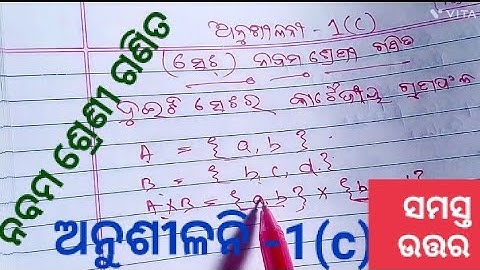 VITA
ଅନୁଶୀଳନୀ - 1(c)
(ସେଟ୍) ନବମ ଶ୍ରେଣୀ ଗଣିତ
ଦୁଇଟି ସେଟର କାର୍ଟେଜୀୟ
A = { a, b }
B = { b, c, d }
A × B = { a, b } × { b
ନବମ ଶ୍ରେଣୀ ଗଣିତ
ଅନୁଶୀଳନି -1(c)
ସମସ୍ତ
ଉତ୍ତର